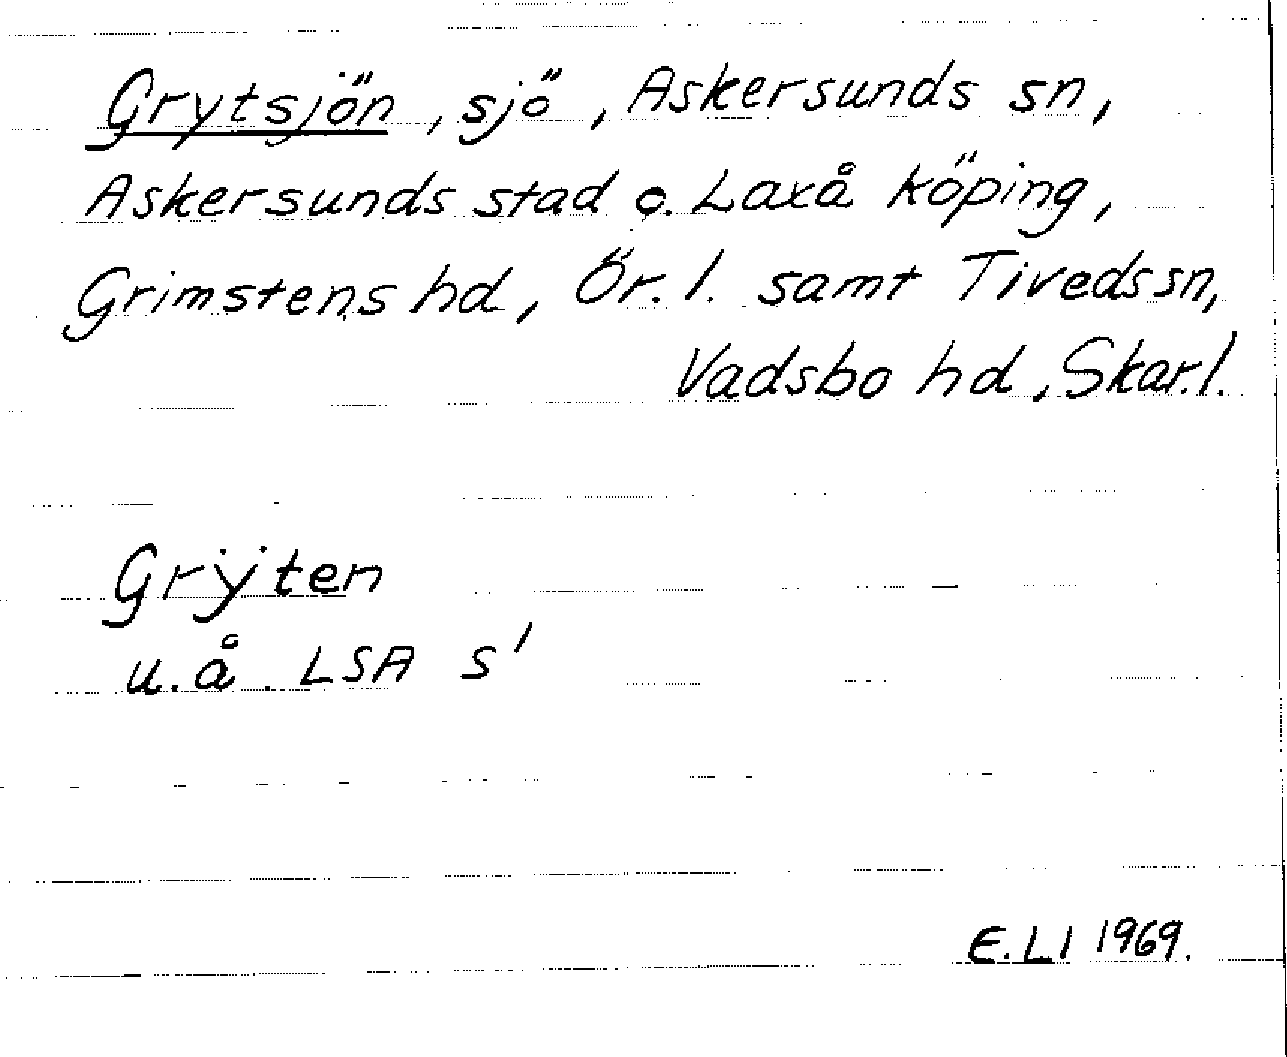 Grytsjön, sjö, Askersunds sn,
Askersunds stad o. Laxå köping,
Grimstens hd, Ör. l. samt Tiveds sn,
Vadsbo hd, Skar. l.
Grÿten
u. å. LSA S'
E. Ll 1969.